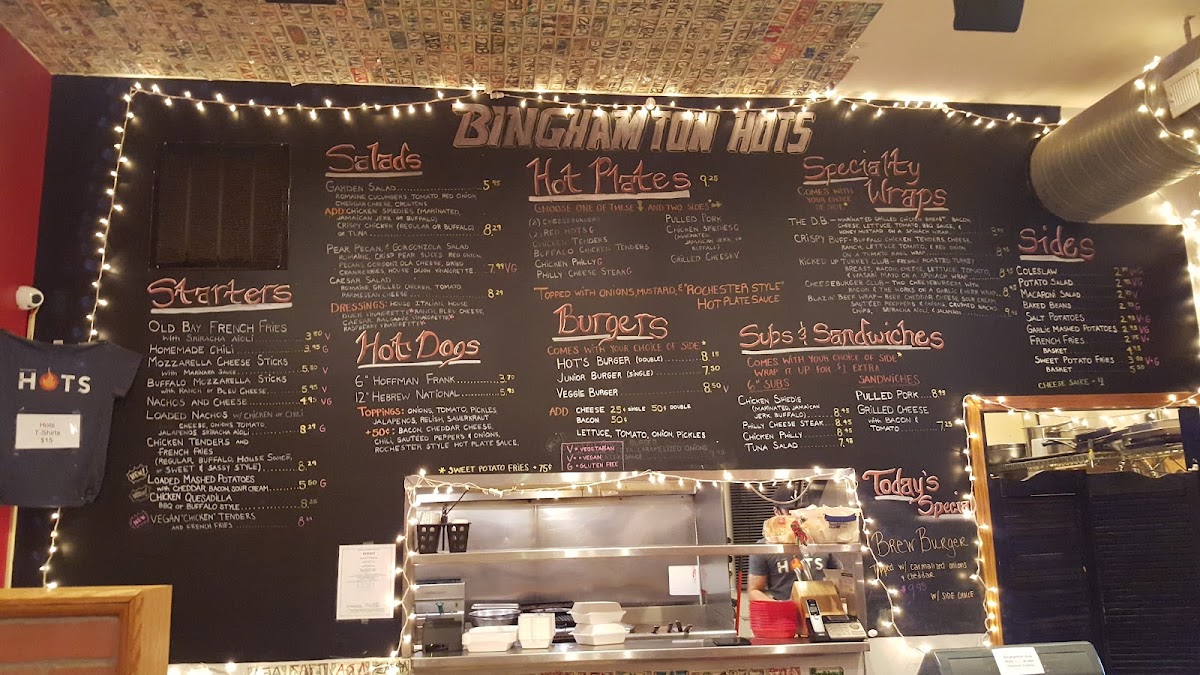 BINGHAMTON HOTS
Salads
GARDEN SALAD 5.95
ROMAINE CUCUMBERS, TOMATO, RED ONION,
CHEDDAR CHEESE, CROUTONS
ADD CHICKEN SPEDIES (MARINATED,
JAMAICAN JERK OR BUFFALO)
CRISPY CHICKEN (REGULAR OR BUFFALO)
OR TUNA 8.29
PEAR, PECAN, & GORGONZOLA SALAD
ROMAINE, CRISP PEAR SLICES, RED ONION,
PECANS, GORGONZOLA CHEESE, DRIED
CRANBERRIES, HOUSE DIJON VINAIGRETTE 7.99 VG
CAESAR SALAD
ROMAINE, GRILLED CHICKEN, TOMATO,
PARMESAN CHEESE 8.29
DRESSINGS: HOUSE ITALIAN, HOUSE
DIJON VINAIGRETTE, RANCH, BLEU CHEESE,
CAESAR, BALSAMIC VINAIGRETTE
RASPBERRY VINAIGRETTE
Starters
OLD BAY FRENCH FRIES
WITH SRIRACHA AIOLI 3.50 V
HOMEMADE CHILI 3.95 G
MOZZARELLA CHEESE STICKS
WITH MARINARA SAUCE 5.50 V
BUFFALO MOZZARELLA STICKS
WITH RANCH OR BLEU CHEESE 5.95 V
NACHOS AND CHEESE 4.95 VG
LOADED NACHOS W/ CHICKEN OR CHILI
CHEESE, ONIONS, TOMATO,
JALAPENOS, SRIRACHA AIOLI 8.29 G
CHICKEN TENDERS AND
FRENCH FRIES
(REGULAR, BUFFALO, HOUSE SAUCE,
OR SWEET & SASSY STYLE) 8.29
NEW! LOADED MASHED POTATOES
WITH CHEDDAR, BACON, SOUR CREAM 5.50 G
CHICKEN QUESADILLA
BBQ OR BUFFALO STYLE 8.25
NEW VEGAN "CHICKEN" TENDERS
AND FRENCH FRIES 8.29
Hot Dogs
6" HOFFMAN FRANK 3.70
12" HEBREW NATIONAL 5.95
TOPPINGS: ONIONS, TOMATO, PICKLES,
JALAPENOS, RELISH, SAUERKRAUT
+50¢: BACON, CHEDDAR CHEESE,
CHILI, SAUTÉED PEPPERS & ONIONS,
ROCHESTER STYLE HOT PLATE SAUCE,
* SWEET POTATO FRIES + 75¢
Hot Plates 9.25
CHOOSE ONE OF THESE AND TWO SIDES
(2) CHEESEBURGERS
(2) RED HOTS G
CHICKEN TENDERS
BUFFALO CHICKEN TENDERS
CHICKEN PHILLY G
PHILLY CHEESE STEAK G
PULLED PORK
CHICKEN SPEDIES G
(MARINATED,
JAMAICAN JERK, OR
BUFFALO)
GRILLED CHEESE V
TOPPED WITH ONIONS, MUSTARD, & "ROCHESTER STYLE"
HOT PLATE SAUCE
Burgers
COMES WITH YOUR CHOICE OF SIDE*
HOT'S BURGER (DOUBLE) 8.15
JUNIOR BURGER (SINGLE) 7.50
VEGGIE BURGER 8.50 V
ADD CHEESE 25¢ SINGLE 50¢ DOUBLE
BACON 50¢
LETTUCE, TOMATO, ONION, PICKLES
CARAMELIZED ONIONS
V = VEGETARIAN
V = VEGAN
G = GLUTEN FREE
Specialty
Wraps
COMES WITH
YOUR CHOICE
OF SIDE*
THE D.B. - MARINATED GRILLED CHICKEN BREAST, BACON,
CHEESE, LETTUCE, TOMATO, BBQ SAUCE, &
HONEY MUSTARD ON A SPINACH WRAP 8.95
CRISPY BUFF - BUFFALO CHICKEN TENDERS, CHEESE,
BACON, LETTUCE, TOMATO, & RED ONION
ON A TOMATO BASIL WRAP 8.95
KICKED UP TURKEY CLUB - FRENCH ROASTED TURKEY
BREAST, BACON, CHEESE, LETTUCE, TOMATO,
& WASABI MAYO ON A SPINACH WRAP 8.95
CHEESEBURGER CLUB - TWO CHEESEBURGERS WITH
BACON & THE WORKS ON A GARLIC HERB WRAP 8.95
BLAZIN' BEEF WRAP - BEEF, CHEDDAR CHEESE, SOUR CREAM,
SAUTÉED PEPPERS & ONIONS, CRUSHED NACHO
CHIPS, SRIRACHA AIOLI, & JALAPENOS 8.95
Subs & Sandwiches
COMES WITH YOUR CHOICE OF SIDE*
WRAP IT UP FOR $1 EXTRA
6" SUBS
CHICKEN SPIEDIE
(MARINATED, JAMAICAN
JERK, BUFFALO) 8.95
PHILLY CHEESE STEAK 8.95
CHICKEN PHILLY 8.95
TUNA SALAD 7.98
SANDWICHES
PULLED PORK 8.99
GRILLED CHEESE
WITH BACON &
TOMATO 7.25
Sides
COLESLAW
POTATO SALAD
MACARONI SALAD
BAKED BEANS
SALT POTATOES
GARLIC MASHED POTATOES
FRENCH FRIES
BASKET
SWEET POTATO FRIES
BASKET
CHEESE SAUCE - $1
Today's
Special
BREW BURGER
Topped w/ carmalized onions
& cheddar
$9.95
w/ SIDE CHOICE
HOTS
Hots
T-Shirts
$15
HOTS